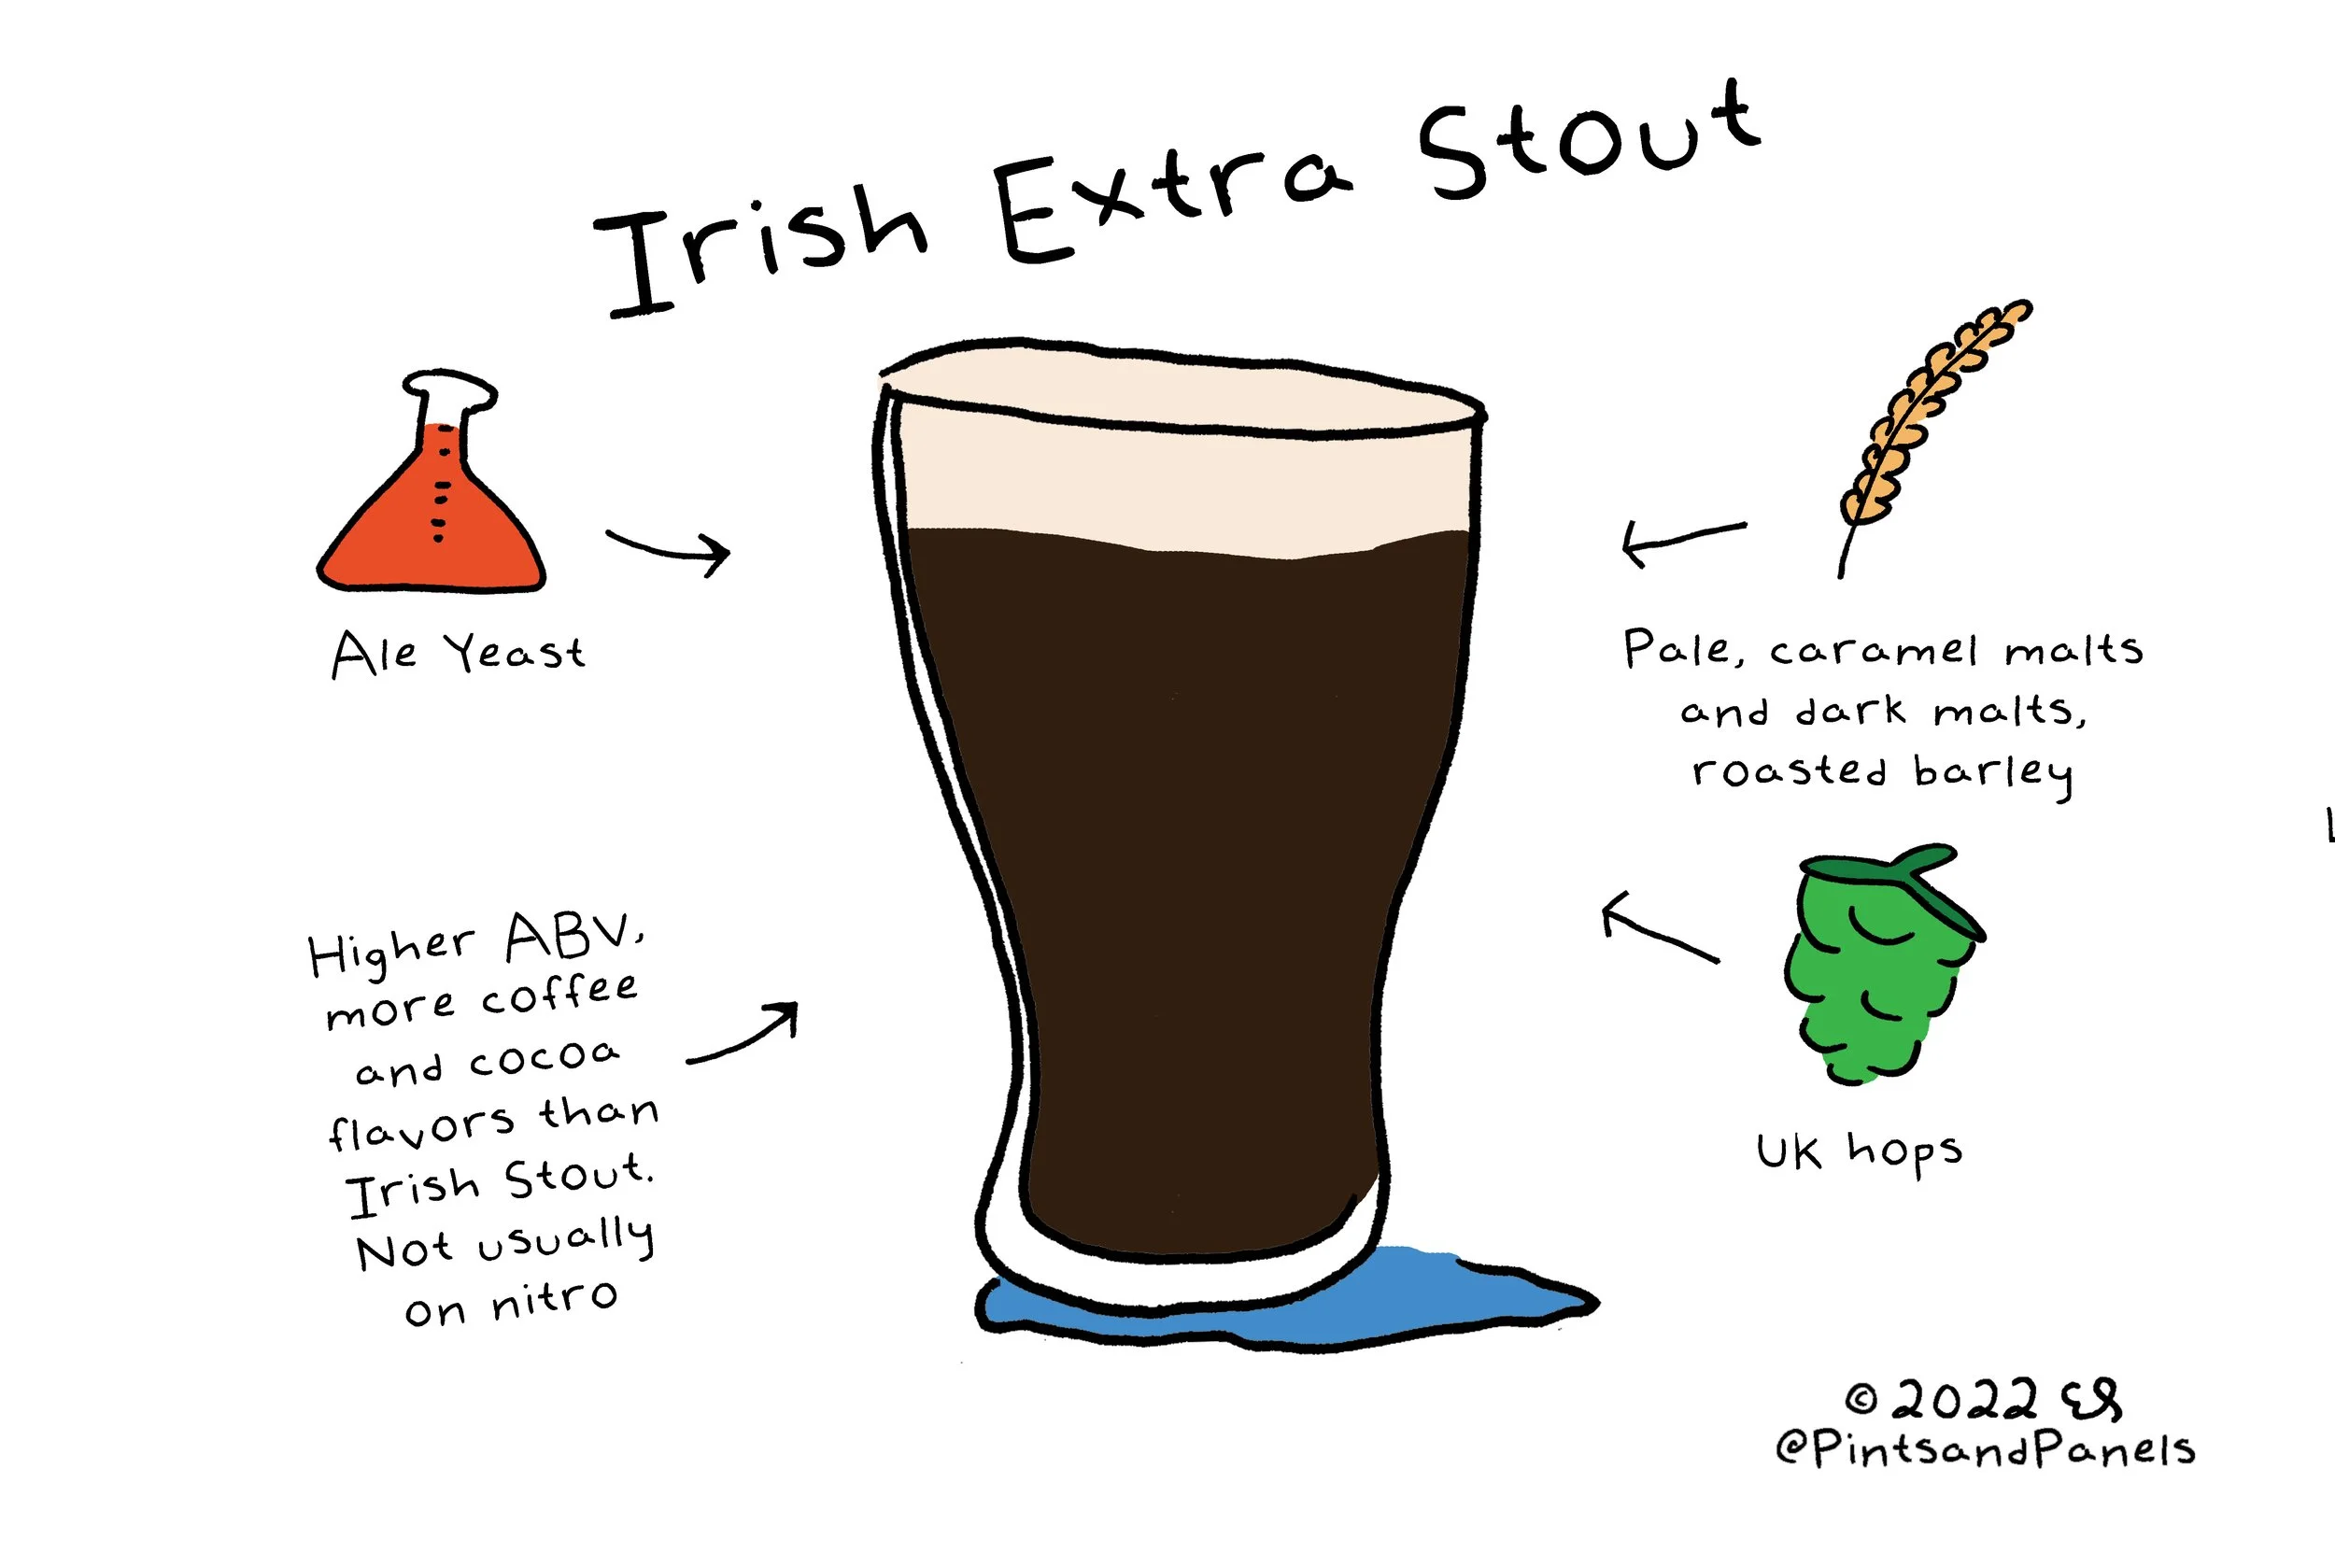 Irish Extra Stout
Ale Yeast
Pale, caramel malts
and dark malts,
roasted barley
Higher ABV,
more coffee
and cocoa
flavors than
Irish Stout.
Not usually
on nitro
UK hops
© 2022
@PintsandPanels